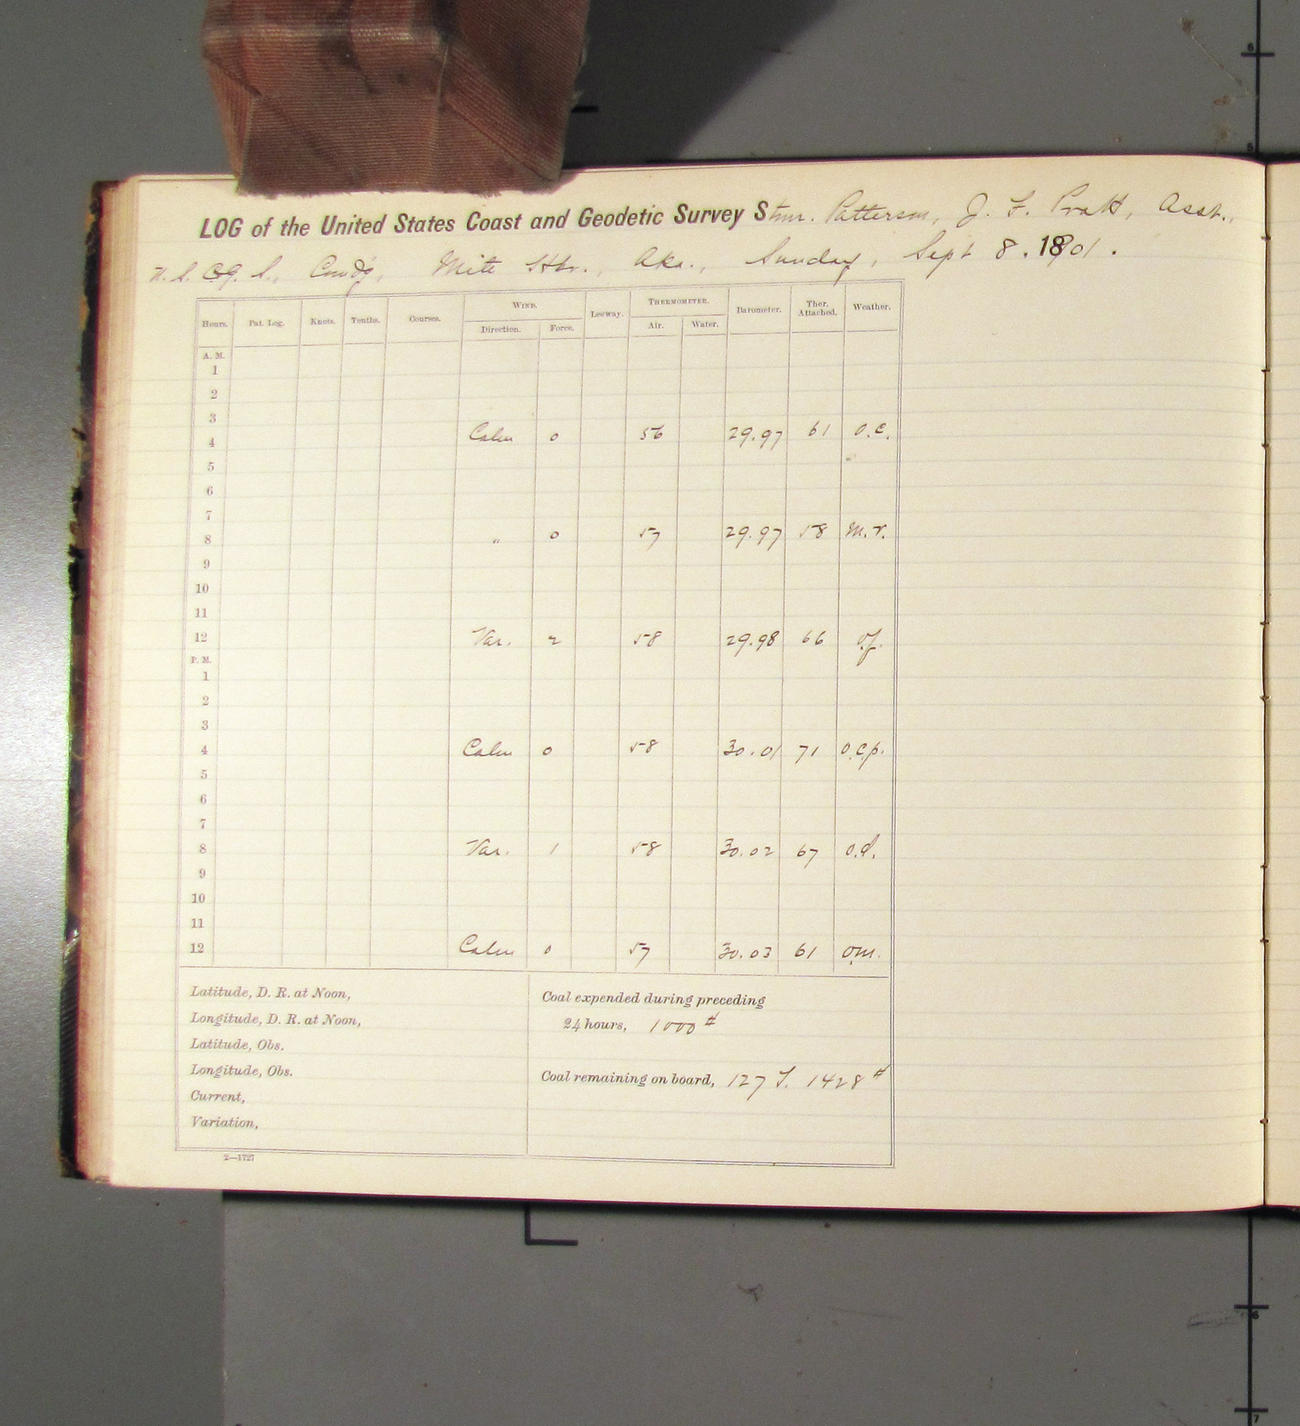 LOG of the United States Coast and Geodetic Survey Stmr. Patterson, J. F. Pratt, Asst.,
U. S. C & G. S., Comdg, Mitt Hbr., Aka., Sunday, Sept 8. 1901.
Hours. Pat. Log. Knots. Tenths. Courses. WIND. Direction. Force. Leeway. THERMOMETER. Air. Water. Barometer. Ther. Attached. Weather.
A. M.
1
2
3
4 Calm 0 56 29.97 61 O.C.
5
6
7
8 " 0 57 29.97 58 M.r.
9
10
11
12 Var. 2 58 29.98 66 o.f.
P. M.
1
2
3
4 Calm 0 58 30.01 71 O.C.p.
5
6
7
8 Var. 1 58 30.02 67 O.d.
9
10
11
12 Calm 0 57 30.03 61 O.m.
Latitude, D. R. at Noon,
Longitude, D. R. at Noon,
Latitude, Obs.
Longitude, Obs.
Current,
Variation,
Coal expended during preceding
24 hours, 1000 #
Coal remaining on board, 127 T. 1428 #
2—1727
5
6
6
7